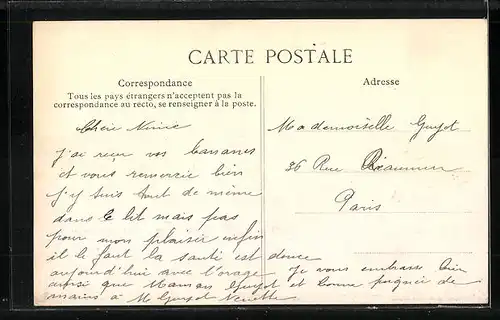 CARTE POSTALE
Correspondance
Tous les pays étrangers n'acceptent pas la
correspondance au recto, se renseigner à la poste.
Adresse
Chère Ninie
J'ai reçu vos bananes
et vous remercie bien
J'y suis tout de même
dans le lit mais pas
pour mon plaisir enfin
il le faut la santé est douce
aujourd'hui avec l'orage Je vous embrasse bien
ainsi que Maman Guyot et bonne poignée de
mains à M Guyot
Mademoiselle Guyot
36 Rue Réaumur
Paris